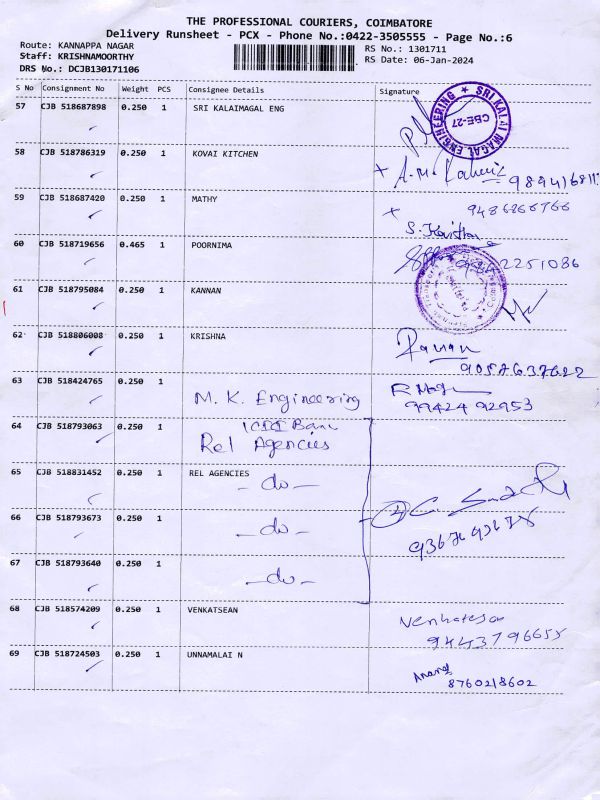 THE PROFESSIONAL COURIERS, COIMBATORE
Delivery Runsheet - PCX - Phone No.:0422-3505555 - Page No.:6
Route: KANNAPPA NAGAR RS No.: 1301711
Staff: KRISHNAMOORTHY RS Date: 06-Jan-2024
DRS No.: DCJB130171106
S No Consignment No Weight PCS Consignee Details Signature
57 CJB 518687898 0.250 1 SRI KALAIMAGAL ENG
SRI KALAI MAGAL ENGINEERING CBE-27
58 CJB 518786319 0.250 1 KOVAI KITCHEN
59 CJB 518687420 0.250 1 MATHY
9486866766
60 CJB 518719656 0.465 1 POORNIMA
61 CJB 518795084 0.250 1 KANNAN
62 CJB 518806008 0.250 1 KRISHNA
Raman
63 CJB 518424765 0.250 1 M. K. Engineering
99424 92953
64 CJB 518793063 0.250 1 ICICI Bank
Rel Agencies
65 CJB 518831452 0.250 1 REL AGENCIES
- do -
66 CJB 518793673 0.250 1 - do -
67 CJB 518793640 0.250 1 - do -
68 CJB 518574209 0.250 1 VENKATSEAN
Venkatesa
9443796655
69 CJB 518724503 0.250 1 UNNAMALAI N
Anand
8760218602